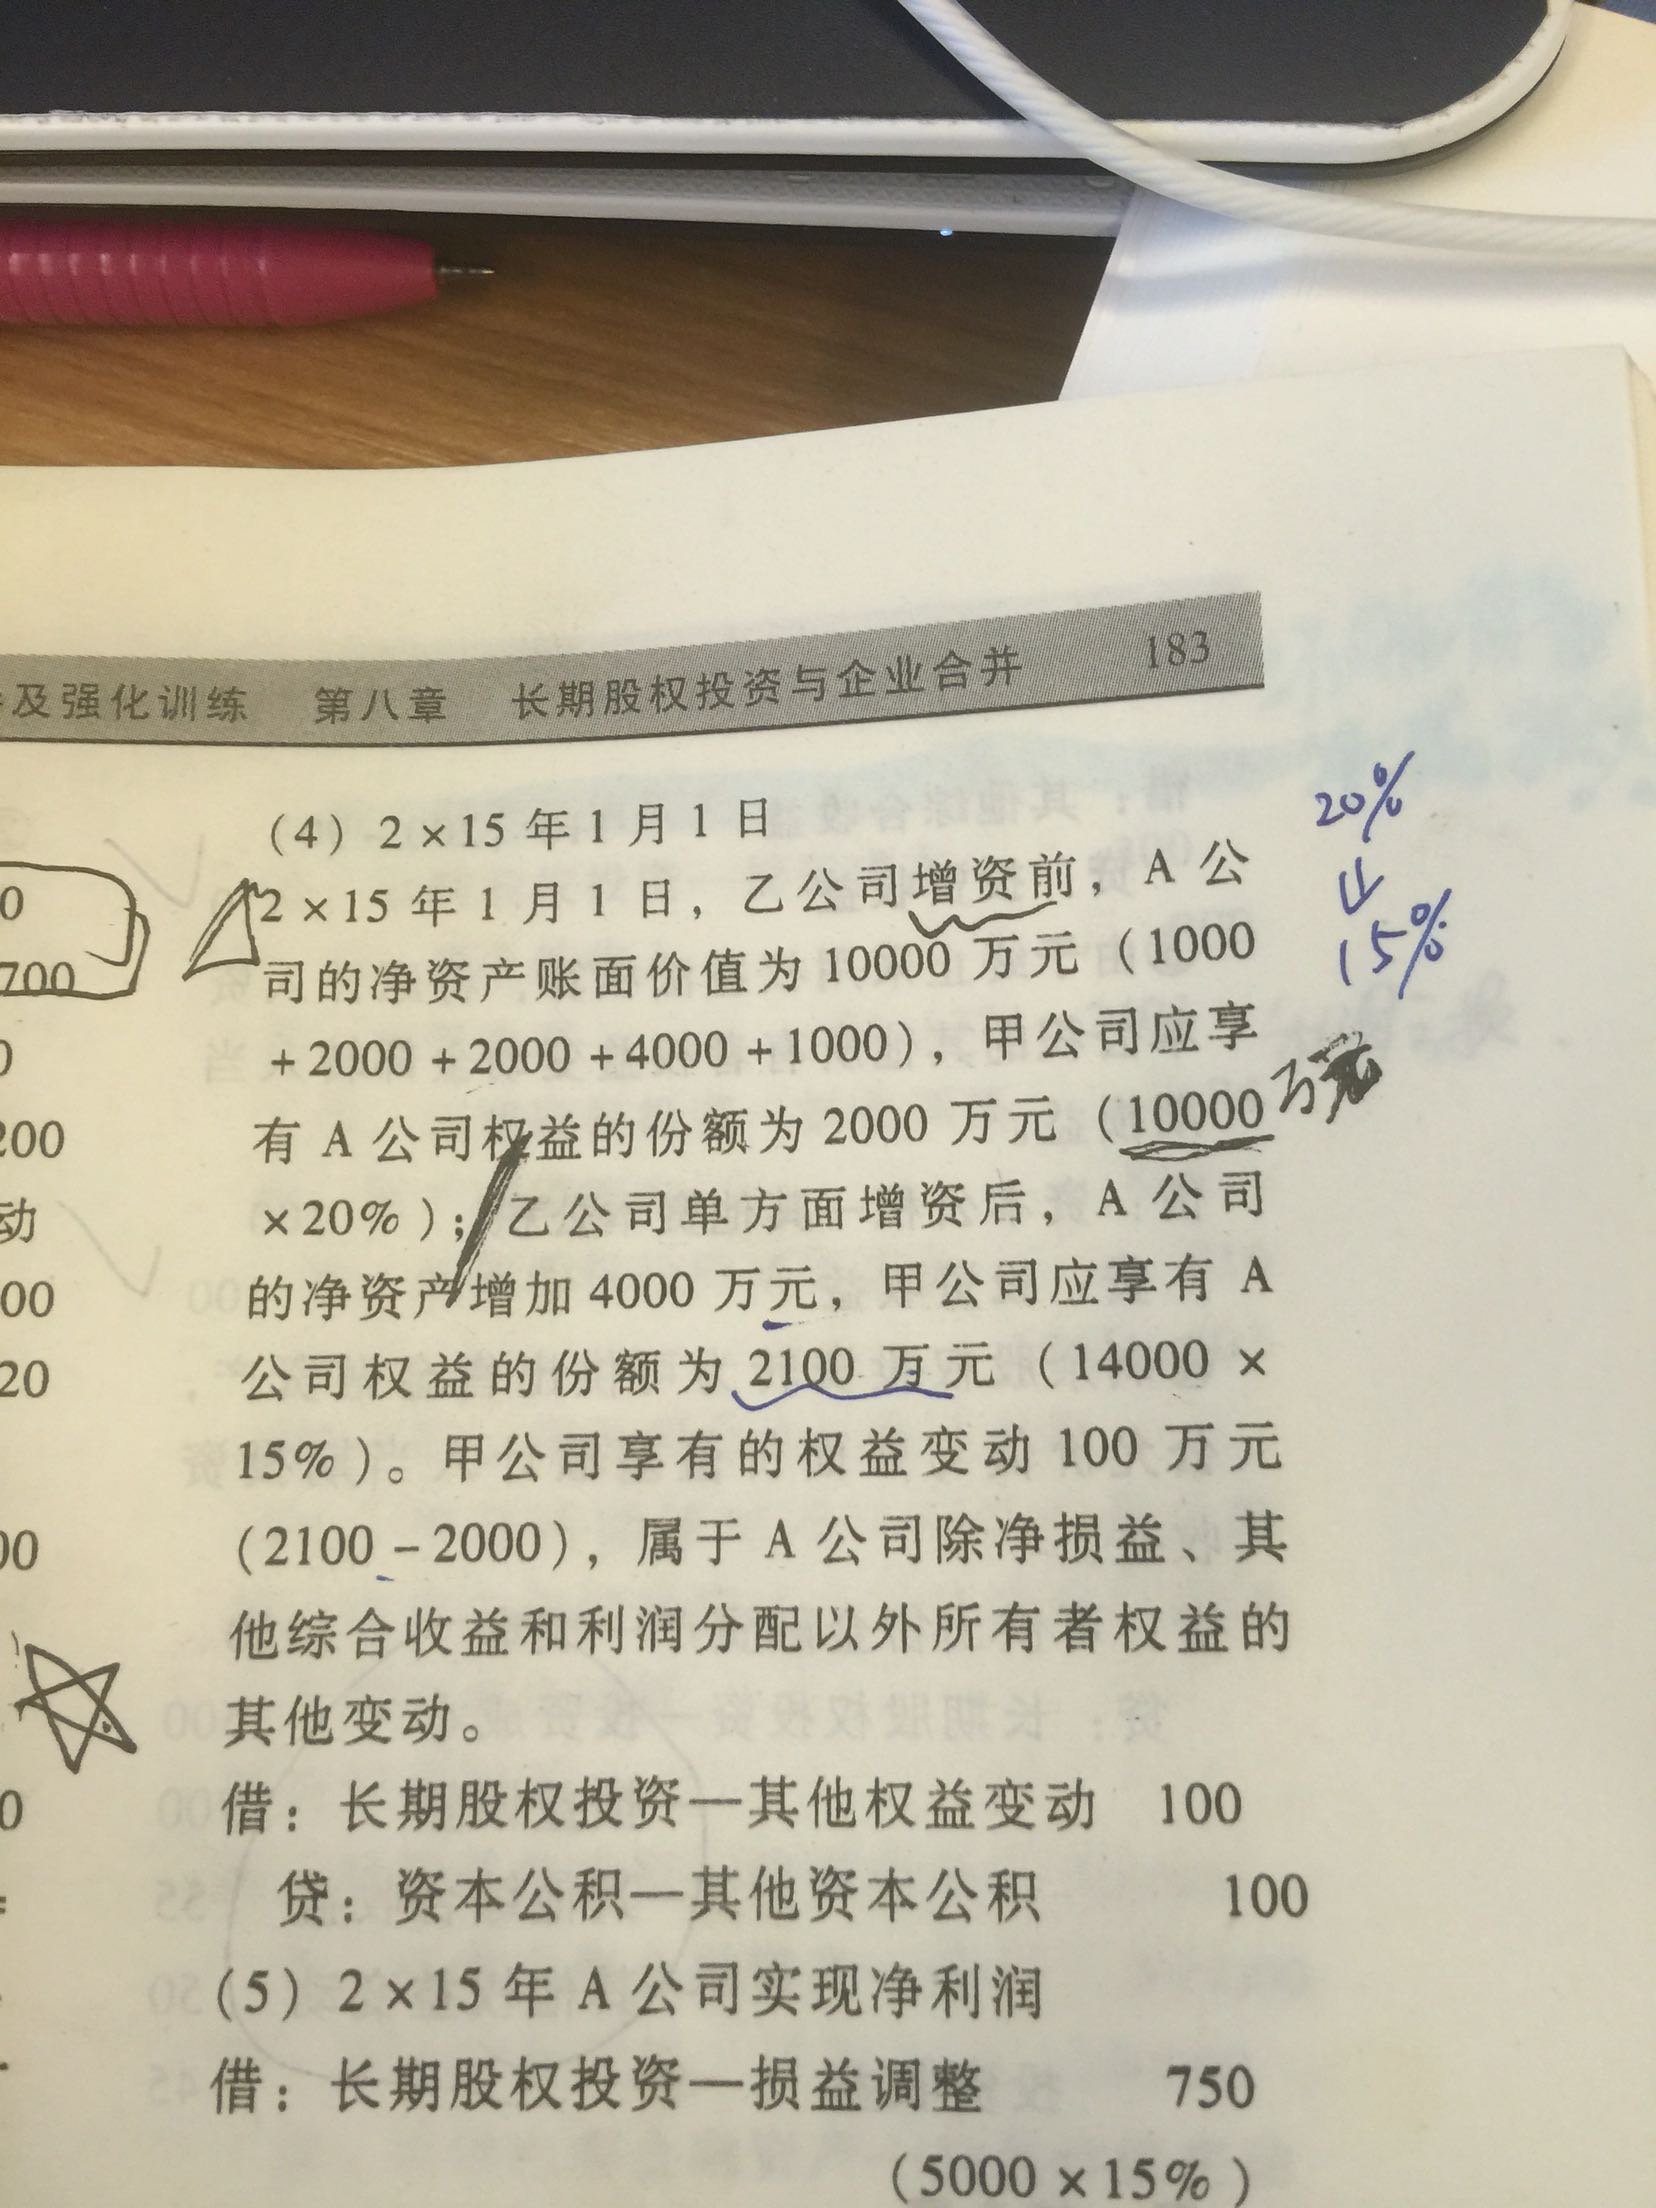 及强化训练 第八章 长期股权投资与企业合并 183
0
700
0
200
动
00
20
00
0
(4) 2×15年1月1日
2×15年1月1日，乙公司增资前，A公
司的净资产账面价值为10000万元（1000
+2000+2000+4000+1000），甲公司应享
有A公司权益的份额为2000万元（10000万元
×20%）；乙公司单方面增资后，A公司
的净资产增加4000万元，甲公司应享有A
公司权益的份额为2100万元（14000×
15%）。甲公司享有的权益变动100万元
（2100-2000），属于A公司除净损益、其
他综合收益和利润分配以外所有者权益的
其他变动。
借：长期股权投资—其他权益变动 100
贷：资本公积—其他资本公积 100
(5) 2×15年A公司实现净利润
借：长期股权投资—损益调整 750
（5000×15%）
20%
↓
15%